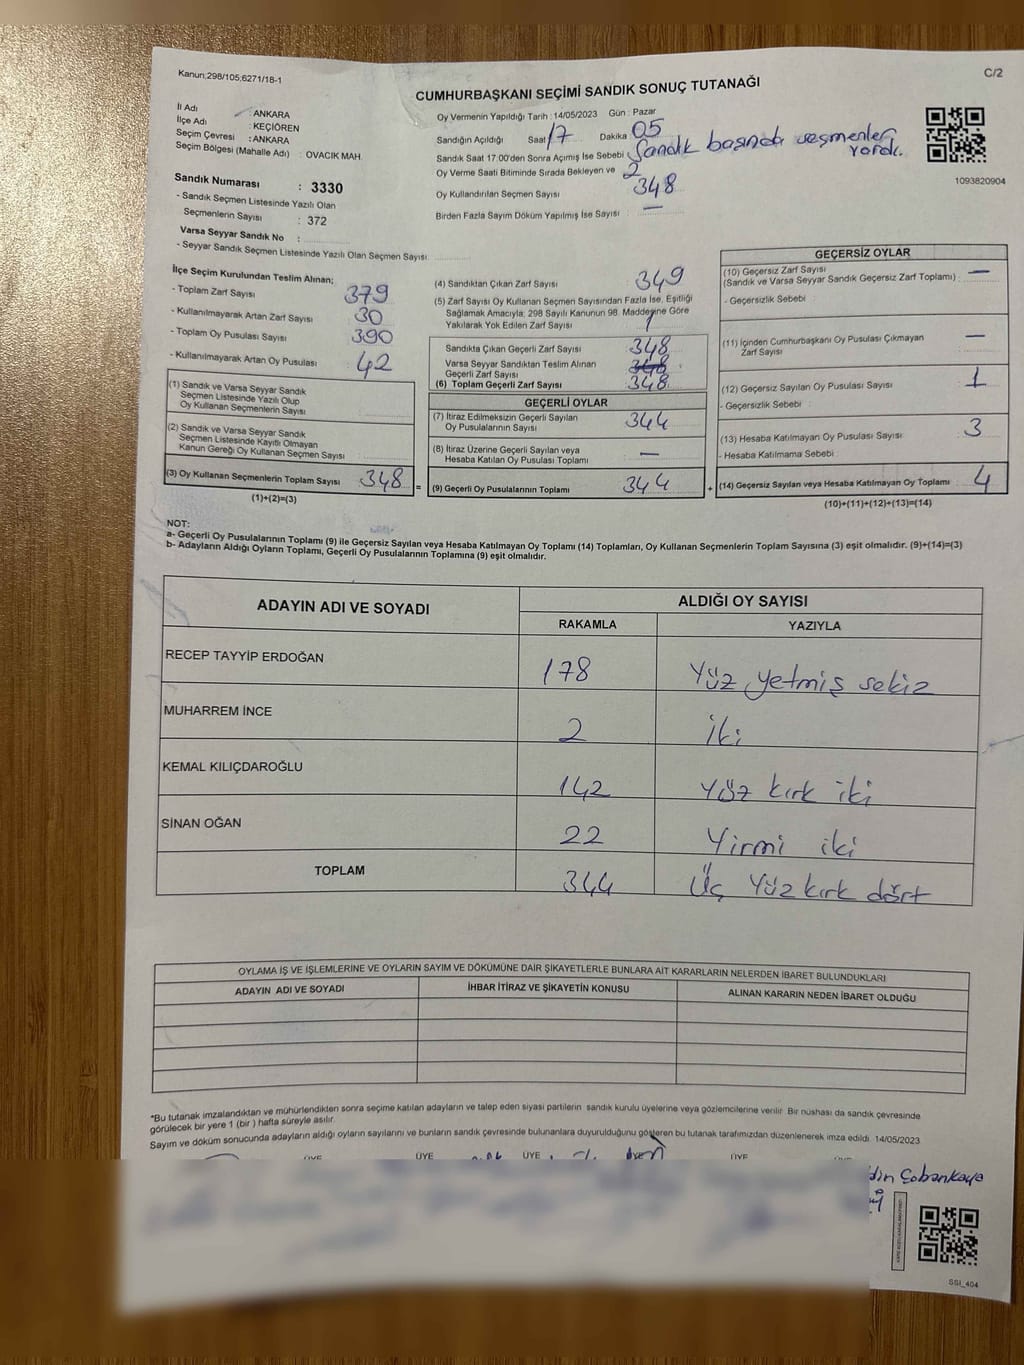 Kanun;298/105;6271/18-1
C/2
CUMHURBAŞKANI SEÇİMİ SANDIK SONUÇ TUTANAĞI
İl Adı : ANKARA
İlçe Adı : KEÇİÖREN
Seçim Çevresi : ANKARA
Seçim Bölgesi (Mahalle Adı) : OVACIK MAH.
Sandık Numarası : 3330
- Sandık Seçmen Listesinde Yazılı Olan
Seçmenlerin Sayısı : 372
Varsa Seyyar Sandık No :
- Seyyar Sandık Seçmen Listesinde Yazılı Olan Seçmen Sayısı:
Oy Vermenin Yapıldığı Tarih : 14/05/2023 Gün : Pazar
Sandığın Açıldığı Saat 17 Dakika 05
Sandık Saat 17:00'den Sonra Açımış İse Sebebi Sandık başında seçmenler
vardı.
Oy Verme Saati Bitiminde Sırada Bekleyen ve 2
Oy Kullandırılan Seçmen Sayısı 348
Birden Fazla Sayım Döküm Yapılmış İse Sayısı —
1093820904
İlçe Seçim Kurulundan Teslim Alınan;
- Toplam Zarf Sayısı 379
- Kullanılmayarak Artan Zarf Sayısı 30
- Toplam Oy Pusulası Sayısı 390
- Kullanılmayarak Artan Oy Pusulası 42
(1) Sandık ve Varsa Seyyar Sandık
Seçmen Listesinde Yazılı Olup
Oy Kullanan Seçmenlerin Sayısı
(2) Sandık ve Varsa Seyyar Sandık
Seçmen Listesinde Kayıtlı Olmayan
Kanun Gereği Oy Kullanan Seçmen Sayısı
(3) Oy Kullanan Seçmenlerin Toplam Sayısı 348
(1)+(2)=(3)
(4) Sandıktan Çıkan Zarf Sayısı 349
(5) Zarf Sayısı Oy Kullanan Seçmen Sayısından Fazla İse, Eşitliği
Sağlamak Amacıyla; 298 Sayılı Kanunun 98. Maddesine Göre
Yakılarak Yok Edilen Zarf Sayısı 1
Sandıkta Çıkan Geçerli Zarf Sayısı 348
Varsa Seyyar Sandıktan Teslim Alınan
Geçerli Zarf Sayısı
(6) Toplam Geçerli Zarf Sayısı 348
GEÇERLİ OYLAR
(7) İtiraz Edilmeksizin Geçerli Sayılan
Oy Pusulalarının Sayısı 344
(8) İtiraz Üzerine Geçerli Sayılan veya
Hesaba Katılan Oy Pusulası Toplamı —
= (9) Geçerli Oy Pusulalarının Toplamı 344
GEÇERSİZ OYLAR
(10) Geçersiz Zarf Sayısı —
(Sandık ve Varsa Seyyar Sandık Geçersiz Zarf Toplamı) :
- Geçersizlik Sebebi :
(11) İçinden Cumhurbaşkanı Oy Pusulası Çıkmayan
Zarf Sayısı —
(12) Geçersiz Sayılan Oy Pusulası Sayısı 1
- Geçersizlik Sebebi :
(13) Hesaba Katılmayan Oy Pusulası Sayısı 3
- Hesaba Katılmama Sebebi :
+ (14) Geçersiz Sayılan veya Hesaba Katılmayan Oy Toplamı 4
(10)+(11)+(12)+(13)=(14)
NOT:
a- Geçerli Oy Pusulalarının Toplamı (9) ile Geçersiz Sayılan veya Hesaba Katılmayan Oy Toplamı (14) Toplamları, Oy Kullanan Seçmenlerin Toplam Sayısına (3) eşit olmalıdır. (9)+(14)=(3)
b- Adayların Aldığı Oyların Toplamı, Geçerli Oy Pusulalarının Toplamına (9) eşit olmalıdır.
ADAYIN ADI VE SOYADI ALDIĞI OY SAYISI
RAKAMLA YAZIYLA
RECEP TAYYİP ERDOĞAN 178 Yüz yetmiş sekiz
MUHARREM İNCE 2 İki
KEMAL KILIÇDAROĞLU 142 Yüz kırk iki
SİNAN OĞAN 22 Yirmi iki
TOPLAM 344 Üç Yüz kırk dört
OYLAMA İŞ VE İŞLEMLERİNE VE OYLARIN SAYIM VE DÖKÜMÜNE DAİR ŞİKAYETLERLE BUNLARA AİT KARARLARIN NELERDEN İBARET BULUNDUKLARI
ADAYIN ADI VE SOYADI İHBAR İTİRAZ VE ŞİKAYETİN KONUSU ALINAN KARARIN NEDEN İBARET OLDUĞU
*Bu tutanak imzalandıktan ve mühürlendikten sonra seçime katılan adayların ve talep eden siyasi partilerin sandık kurulu üyelerine veya gözlemcilerine verilir. Bir nüshası da sandık çevresinde
görülecek bir yere 1 (bir ) hafta süreyle asılır.
Sayım ve döküm sonucunda adayların aldığı oyların sayılarını ve bunların sandık çevresinde bulunanlara duyurulduğunu gösteren bu tutanak tarafımızdan düzenlenerek imza edildi. 14/05/2023
ÜYE ÜYE ÜYE ÜYE
din Çobankaya
SSI_404